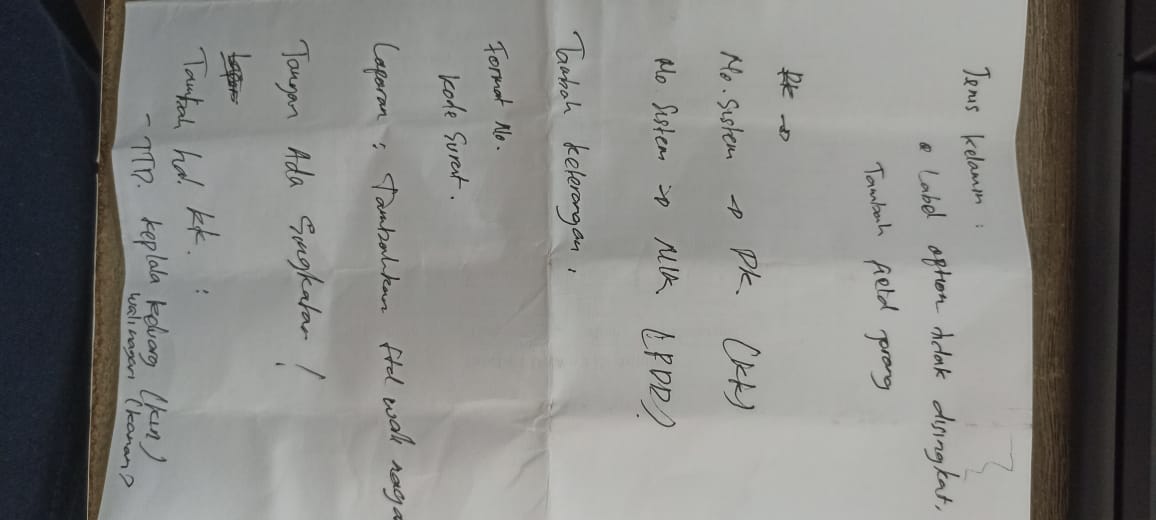 Jenis kelamin :
Label option tidak disingkat,
Tambah field jorong
No. Sistem → PK. (KK)
No Sistem → NIK (PDD)
Tambah keterangan,
Format No.
Kode Surat.
Laporan : Tambahkan ttd wali naga
Jangan Ada Singkatan !
Tambah hal. KK. :
- TTD. keplala keluarg (kiri)
wali nagari (kanan)